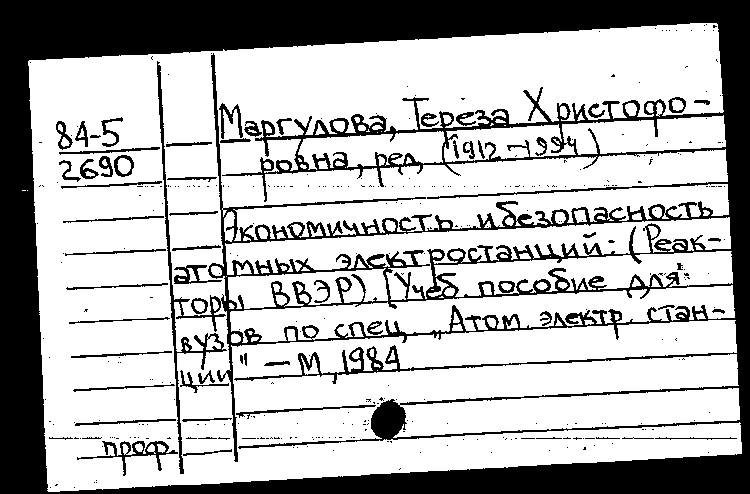 84-5
2690
Маргулова, Тереза Христофо-
ровна, ред, (1912-1994)
Экономичность и безопасность
атомных электростанций: (Реак-
торы ВВЭР). [Учеб. пособие для
вузов по спец. „Атом. электр. стан-
ции" - М, 1984
проф.